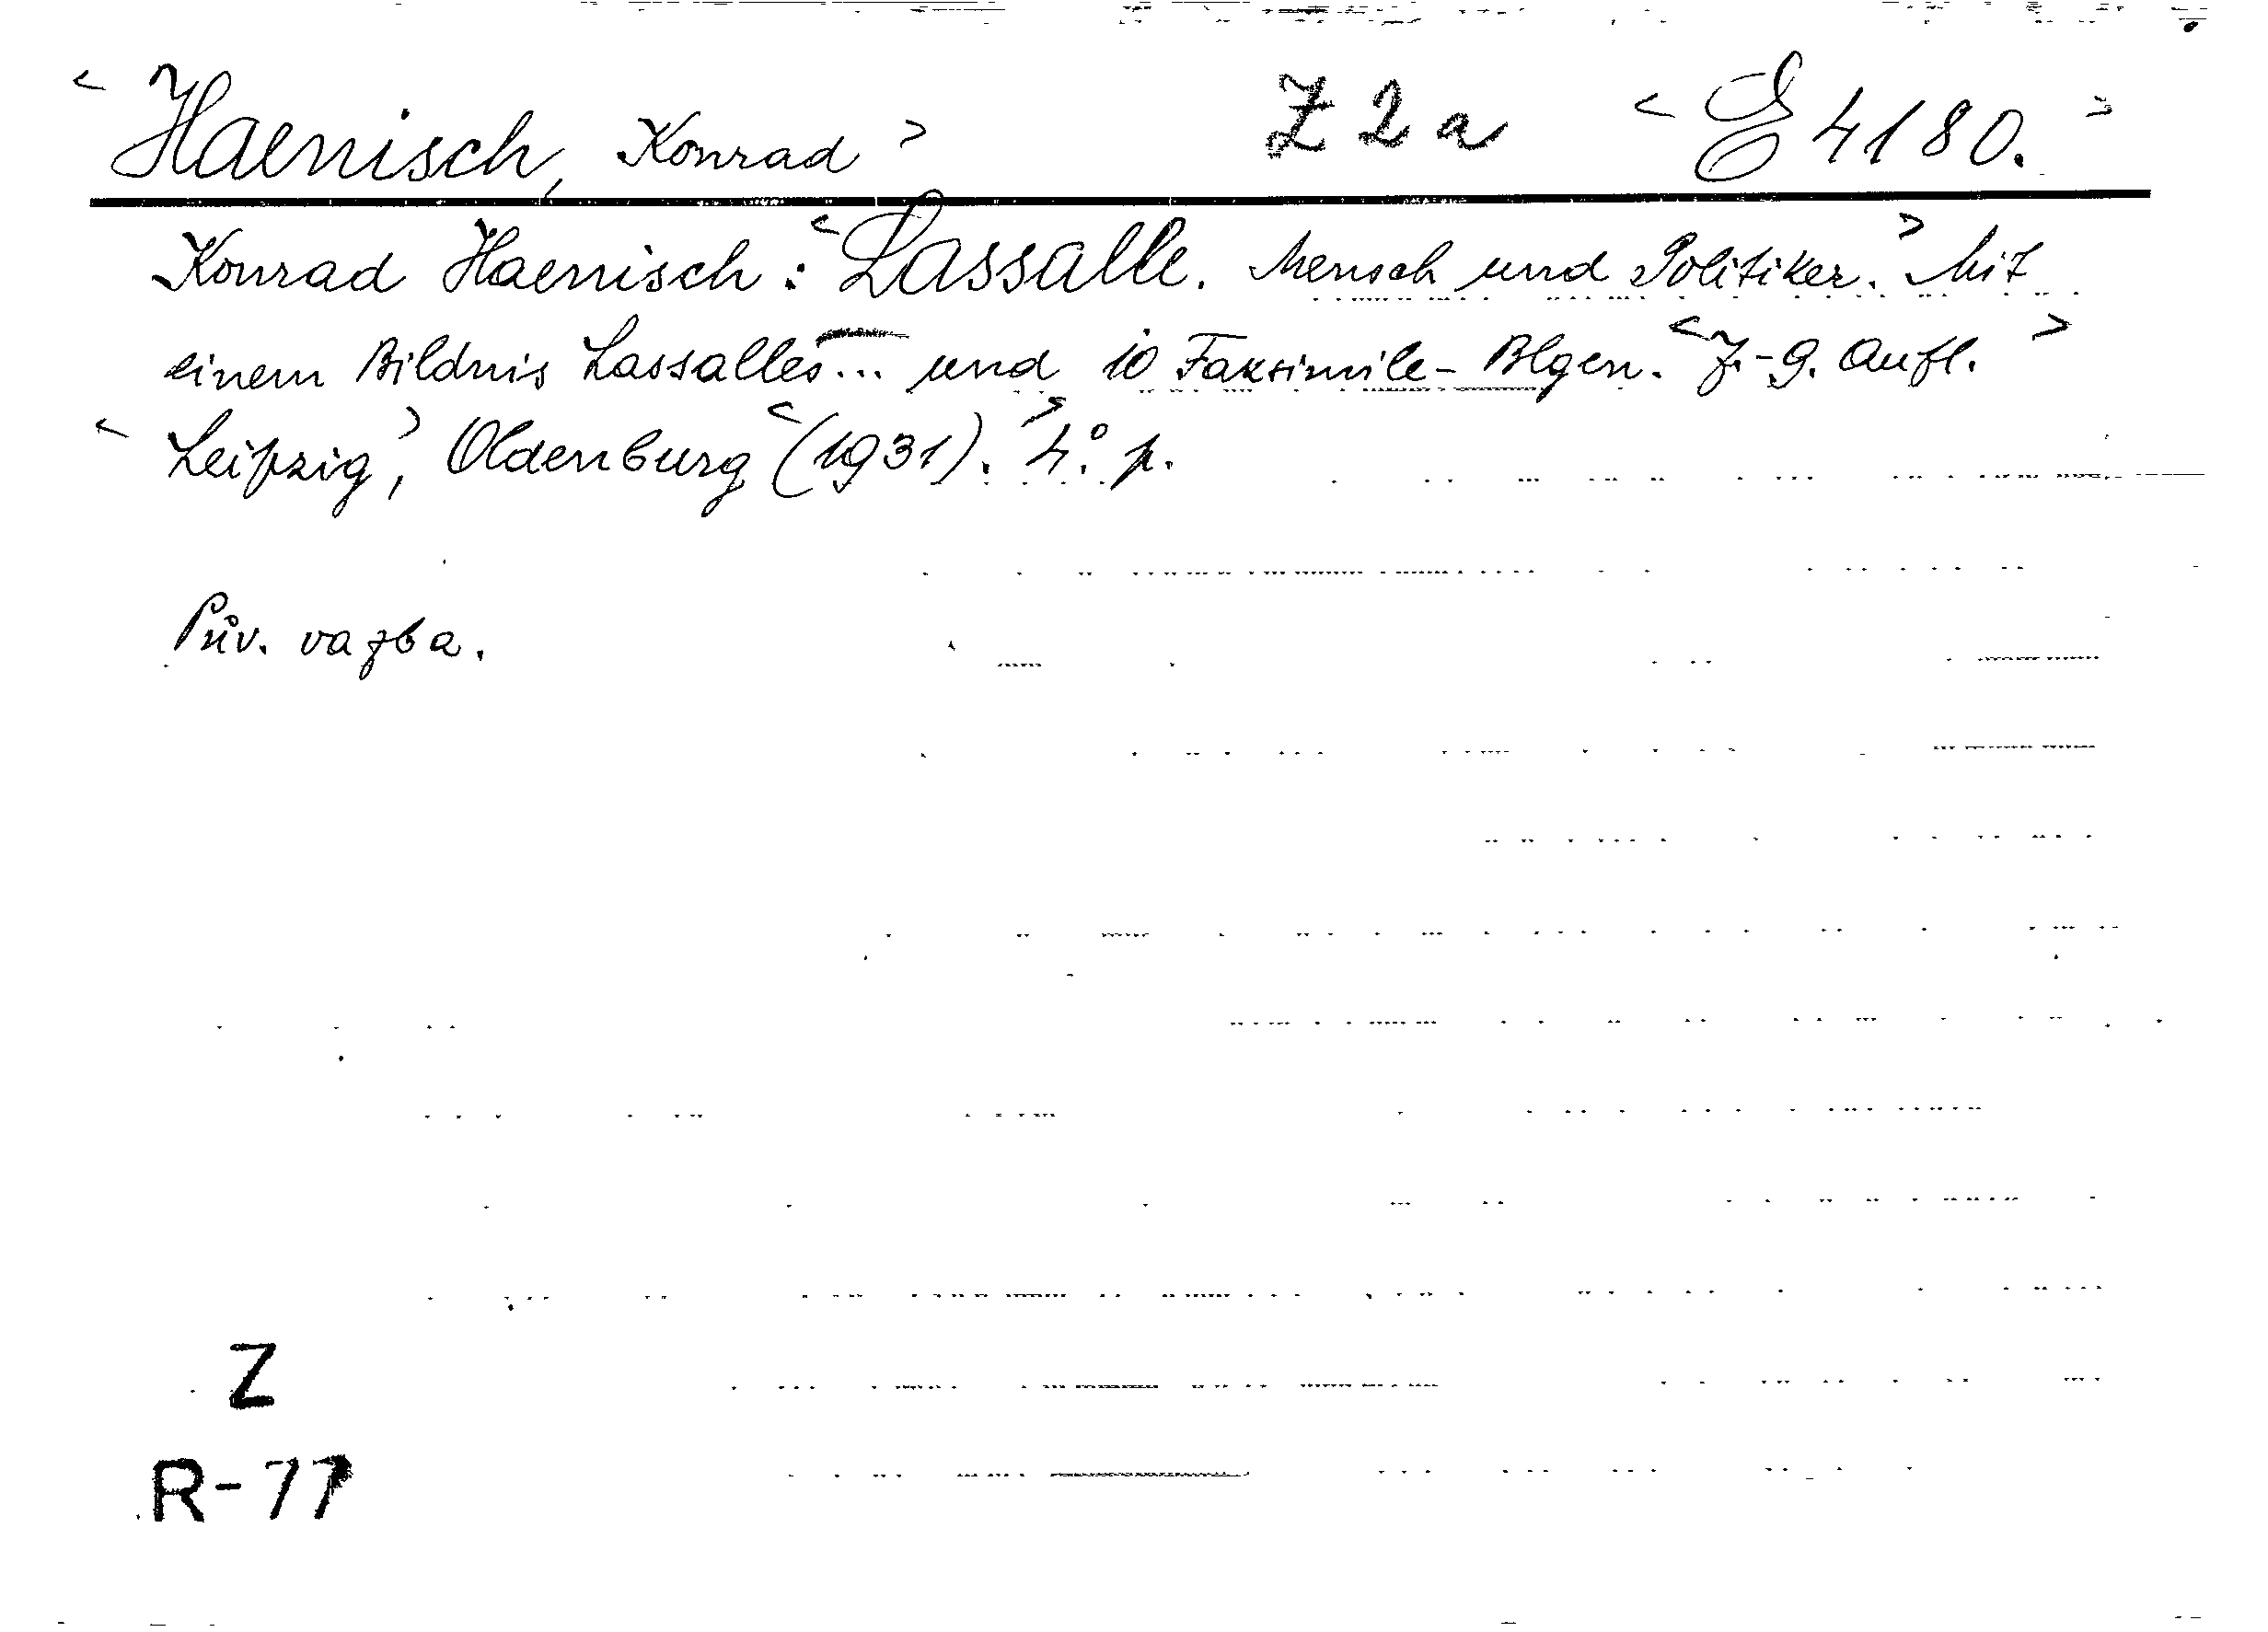 < Haenisch, Konrad > Z 2 a < E 4180. >
Konrad Haenisch: < Lassalle. Mensch und Politiker. > Mit
einem Bildnis Lassalles... und 10 Faksimile-Blgen. < 7.-9. Aufl. >
< Leipzig >, Oldenburg < (1931). > 4°. p.
Pův. vazba.
Z
R-77